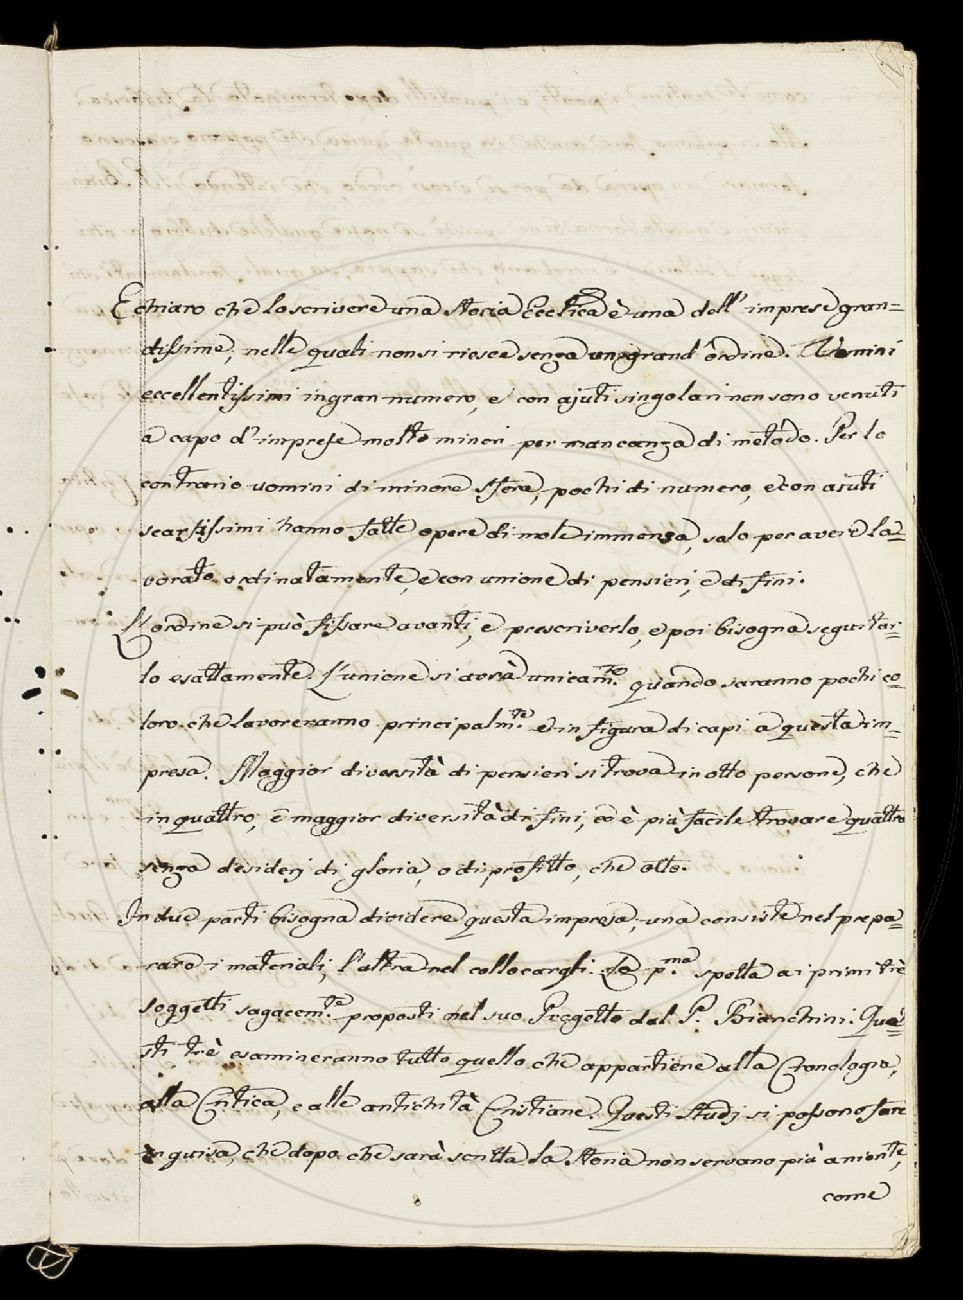 E chiaro che lo scrivere una Storia Eccl.ica è una dell' imprese gran=
dissime, nelle quali non si riesce senza un grand' ordine. Uomini
eccellentissimi in gran numero, e con ajuti singolari non sono venuti
a capo d' imprese molto minori per mancanza di metodo. Per lo
contrario uomini di minore sfera, pochi di numero, e con ajuti
scarsissimi hanno fatte opere di mole immensa, solo per avere la=
vorato ordinatamente, e con unione di pensieri, e di fini.
L' ordine si può fissare avanti, e prescriverlo, e poi bisogna seguitar=
lo esattamente. L' unione si avrà unicam.te quando saranno pochi co=
loro che lavoreranno principalm.te e in figura di capi a questa im=
presa. Maggior diversità di pensieri si trova in otto persone, che
in quattro, e maggior diversità di fini, ed è più facile trovare quattro
senza desiderj di gloria, o di profitto, che otto.
In due parti bisogna dividere questa impresa, una consiste nel prepa=
rare i materiali, l' altra nel collocargli. La p.ma spetta ai primi tre
soggetti sagacem.te proposti nel suo Progetto dal P. Bianchini. Que=
sti trè esamineranno tutto quello che appartiene alla Cronologia,
alla Critica, e alle antichità Cristiane. Questi studj si possono fare
in guisa, che dopo che sarà scritta la Storia non servano più a niente,
come